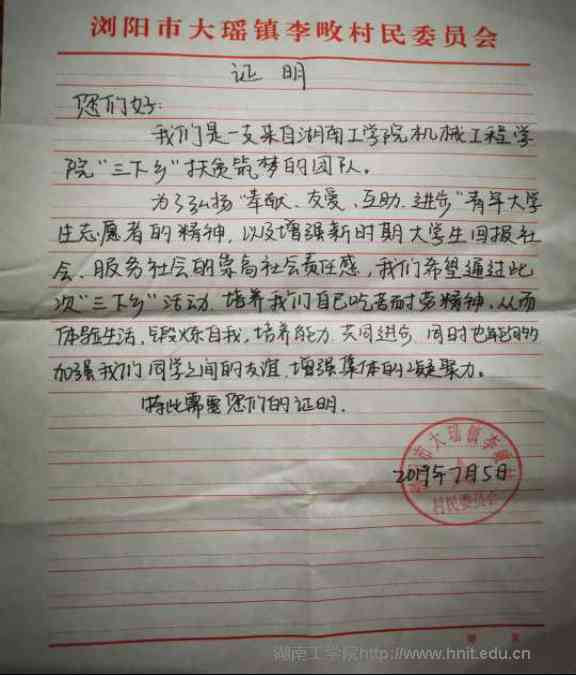 浏阳市大瑶镇李畋村民委员会
证 明
您们好:
我们是一支来自湖南工学院机械工程学
院"三下乡"扶贫筑梦的团队。
为了弘扬"奉献、友爱、互助、进步"青年大学
生志愿者的精神,以及增强新时期大学生回报社
会、服务社会的崇高社会责任感,我们希望通过此
次"三下乡"活动,培养我们自己吃苦耐劳精神,从而
体验生活,锻炼自我,培养能力,共同进步,同时也能够
加强我们同学之间的友谊,增强集体的凝聚力。
特此需要您们的证明.
市大瑶镇李畋村
村民委员会
2019年7月5日
湖南工学院http://www.hnit.edu.cn